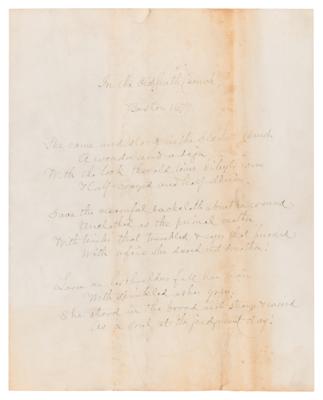 In the Old South Church
Boston 1677.
She came and stood in the Old South Church
A wonder and a sign
With a look the old time sibyls wore
Half-crazed and half-divine.
Save the mournful sackcloth about her wound
Unclothed as the primal mother
With limbs that trembled & eyes that blazed
With a fire she dared not smother!
Loose on her shoulders fell her hair
With sprinkled ashes gray,
She stood in the broad aisle strange & weird
As a soul at the judgment day!